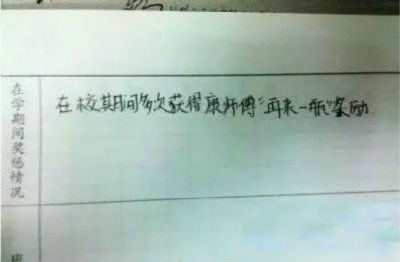 在学期间奖惩情况
在校其间多次获得康师傅“再来一瓶”奖励